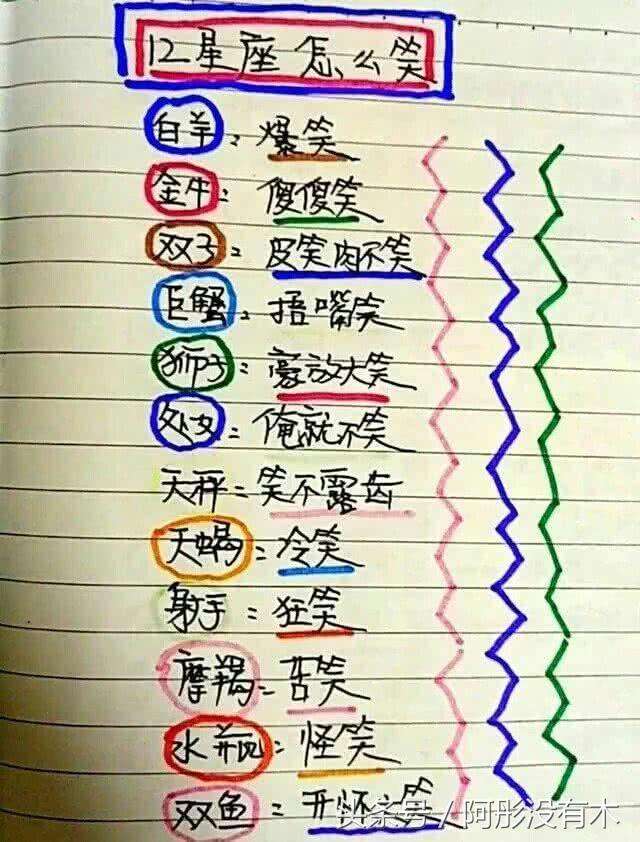 12星座怎么笑
白羊：爆笑
金牛：傻傻笑
双子：皮笑肉不笑
巨蟹：捂嘴笑
狮子：豪放大笑
处女：俺就不笑
天秤：笑不露齿
天蝎：冷笑
射手：狂笑
摩羯：苦笑
水瓶：怪笑
双鱼：开怀笑
头条号/阿彤没有木